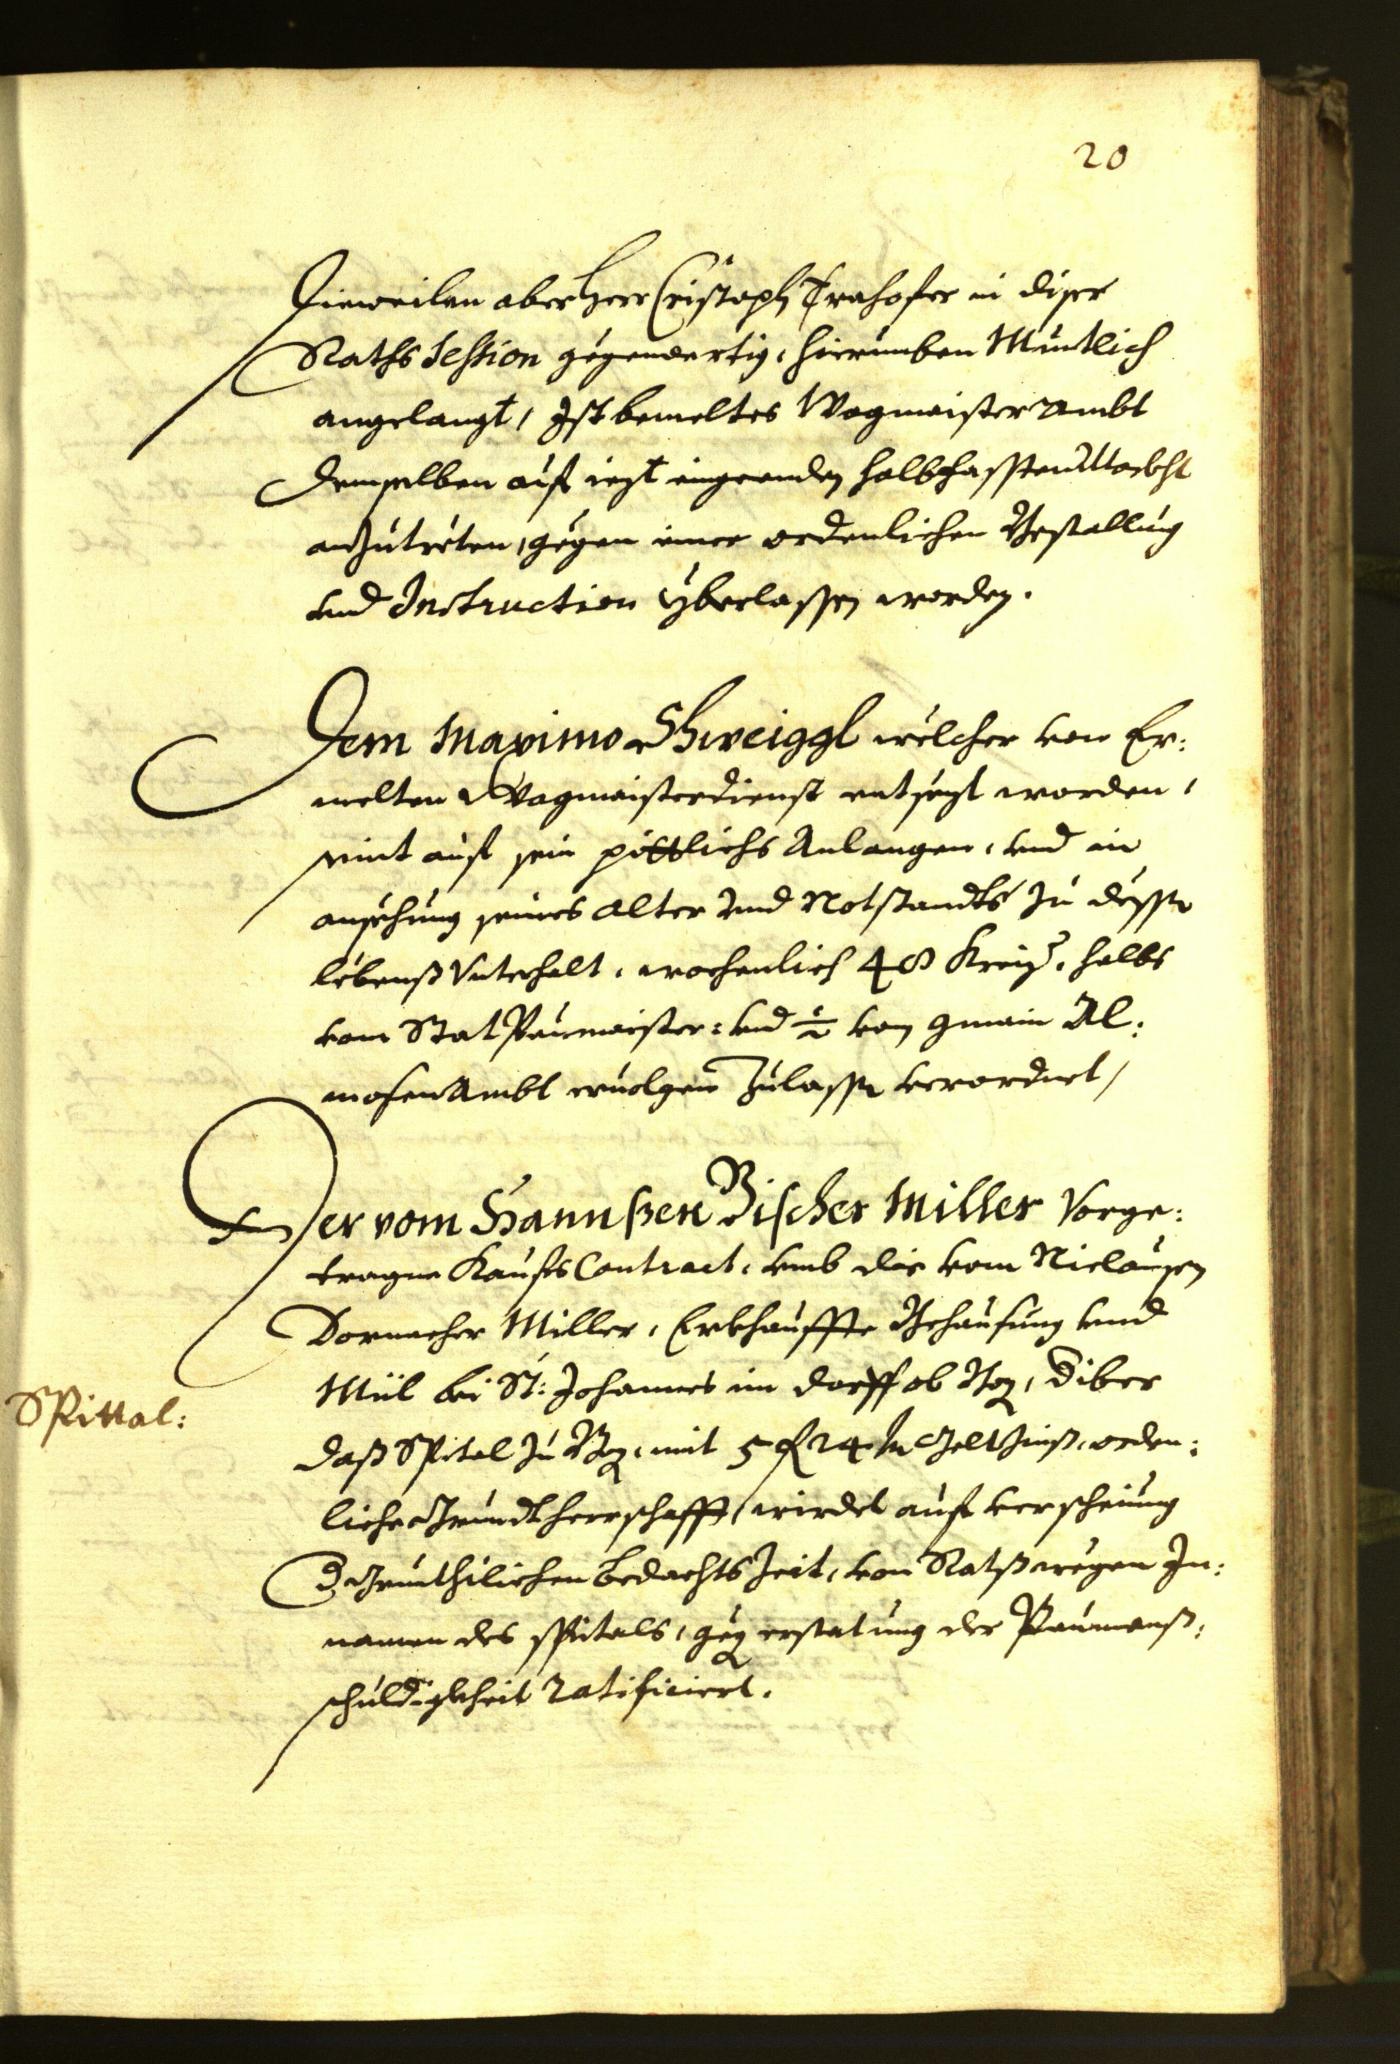 20
Dieweilen aber Herr Cristoph Trahofer in diser
Raths Session gegenwertig, hierumben Mündtlich
angelangt, Ist bemeltes Wagmaister Ambt
demselben auf iezt eingeenden halbfassten Marckht
anzutreten, gegen einer ordenlichen Bestallung
und Instruction yberlassen worden.
Dem Maximo Schweiggl welcher von Er:
melten Wagmaisterdienst entsezt worden,
wirt auf sein pittlichs Anlangen, und in
ansehung seines Alter und Notstandts zu dessen
lebenß Unterhalt, wochenlich 48 Kreiz. halbs
vom Stat Paumaister: und ½ von gmain Al:
mosen Ambt ervolgen zulassen verordnet,
Der vom Hannßen Vischer Miller Vorge:
tragne Kaufs Contract, umb die vom Niclausen
Dornacher Miller, Erkhauffte Behausung und
Mül bei St: Johannes im dorff ob Boz, diber
Spittal:
daß Spital zu Boz, mit 5 f 24 kr Gelt Zinß, orden:
liche Grundtherrschafft, wirdet auf verscheinung
der Grünthilichen bedachts Zeit, von Ratß wegen In:
namen des Spitals, geg erstatung der Paumanß:
schuldigkheit ratificiert.